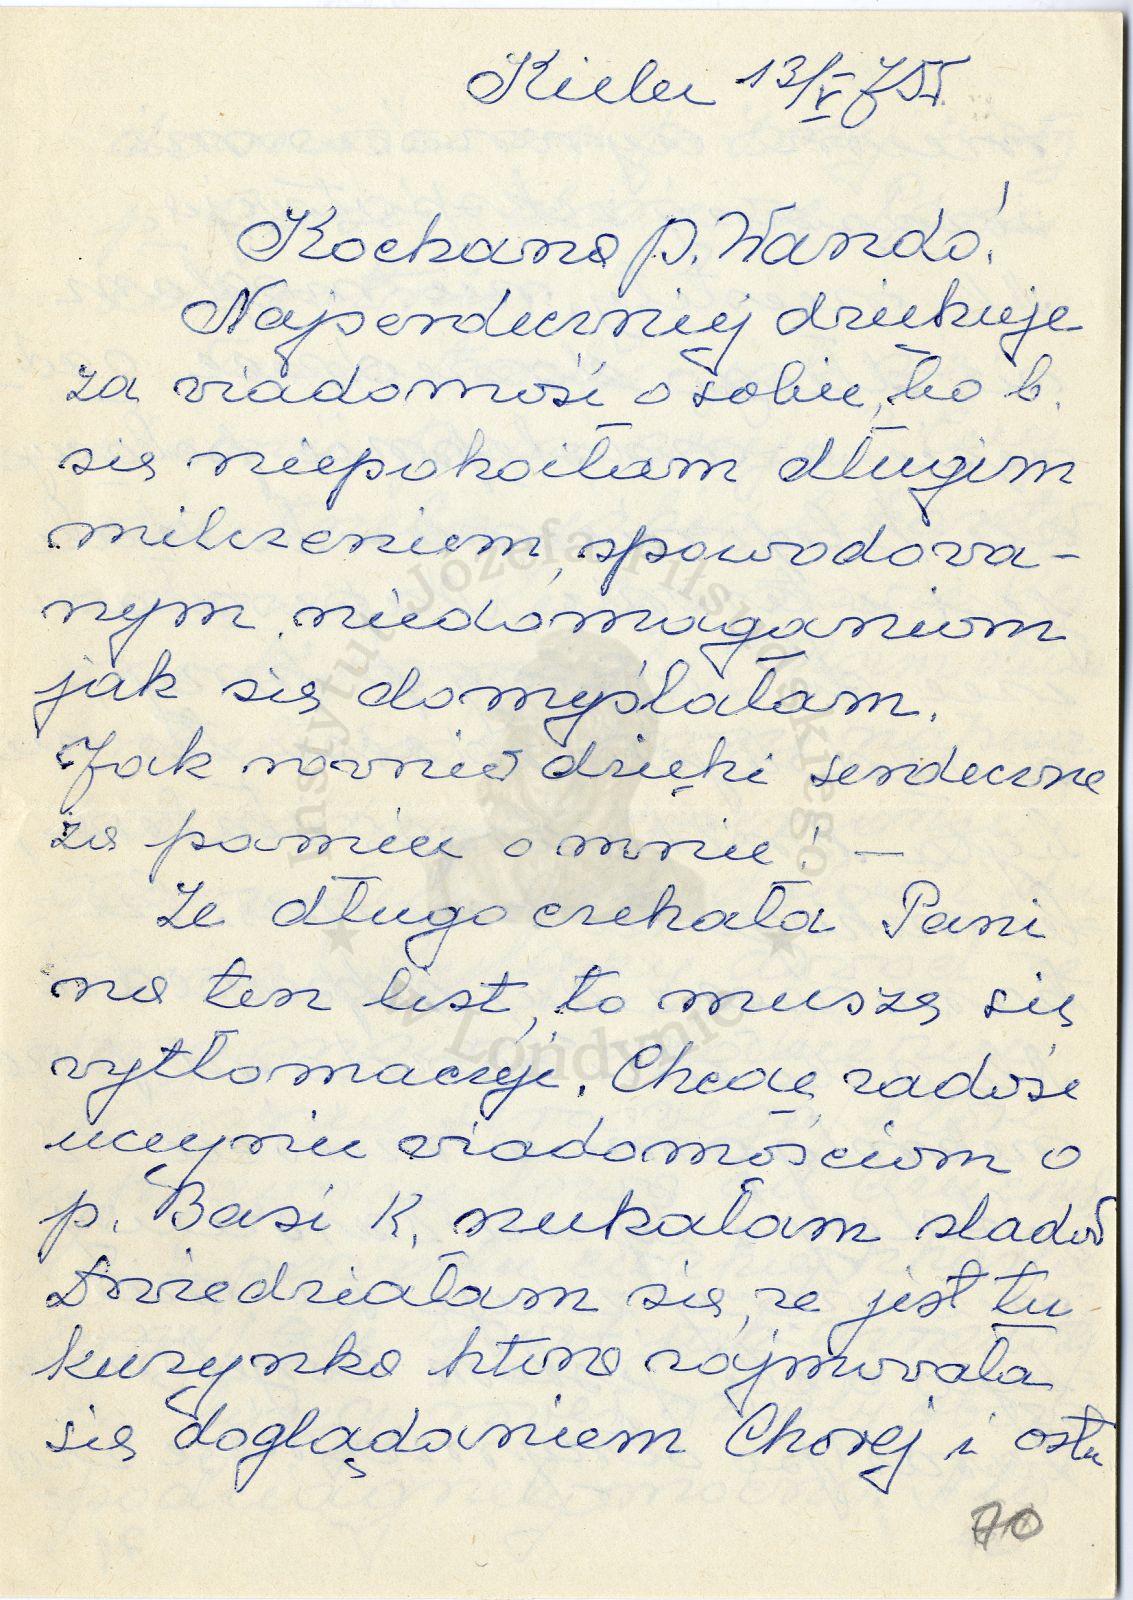 Kielce 13/V 75r.
Kochana p. Wando!
Najserdeczniej dziękuję
za wiadomość o sobie, bo b.
się niepokoiłam długim
milczeniem, spowodowa-
nym niedomaganiem
jak się domyślałam.
Jak rownież dzięki serdeczne
za pamięć o mnie! —
Że długo czekała Pani
na ten list, to muszę się
wytłomaczyć. Chcąc radość
uczynić wiadomościom o
p. Basi K. szukałam sladów
Dwiedziałam się, ze jest tu
kuzynka ktora zajmowała
się doglądaniem Chorej i
70
Instytut Józefa Piłsudskiego
w Londynie